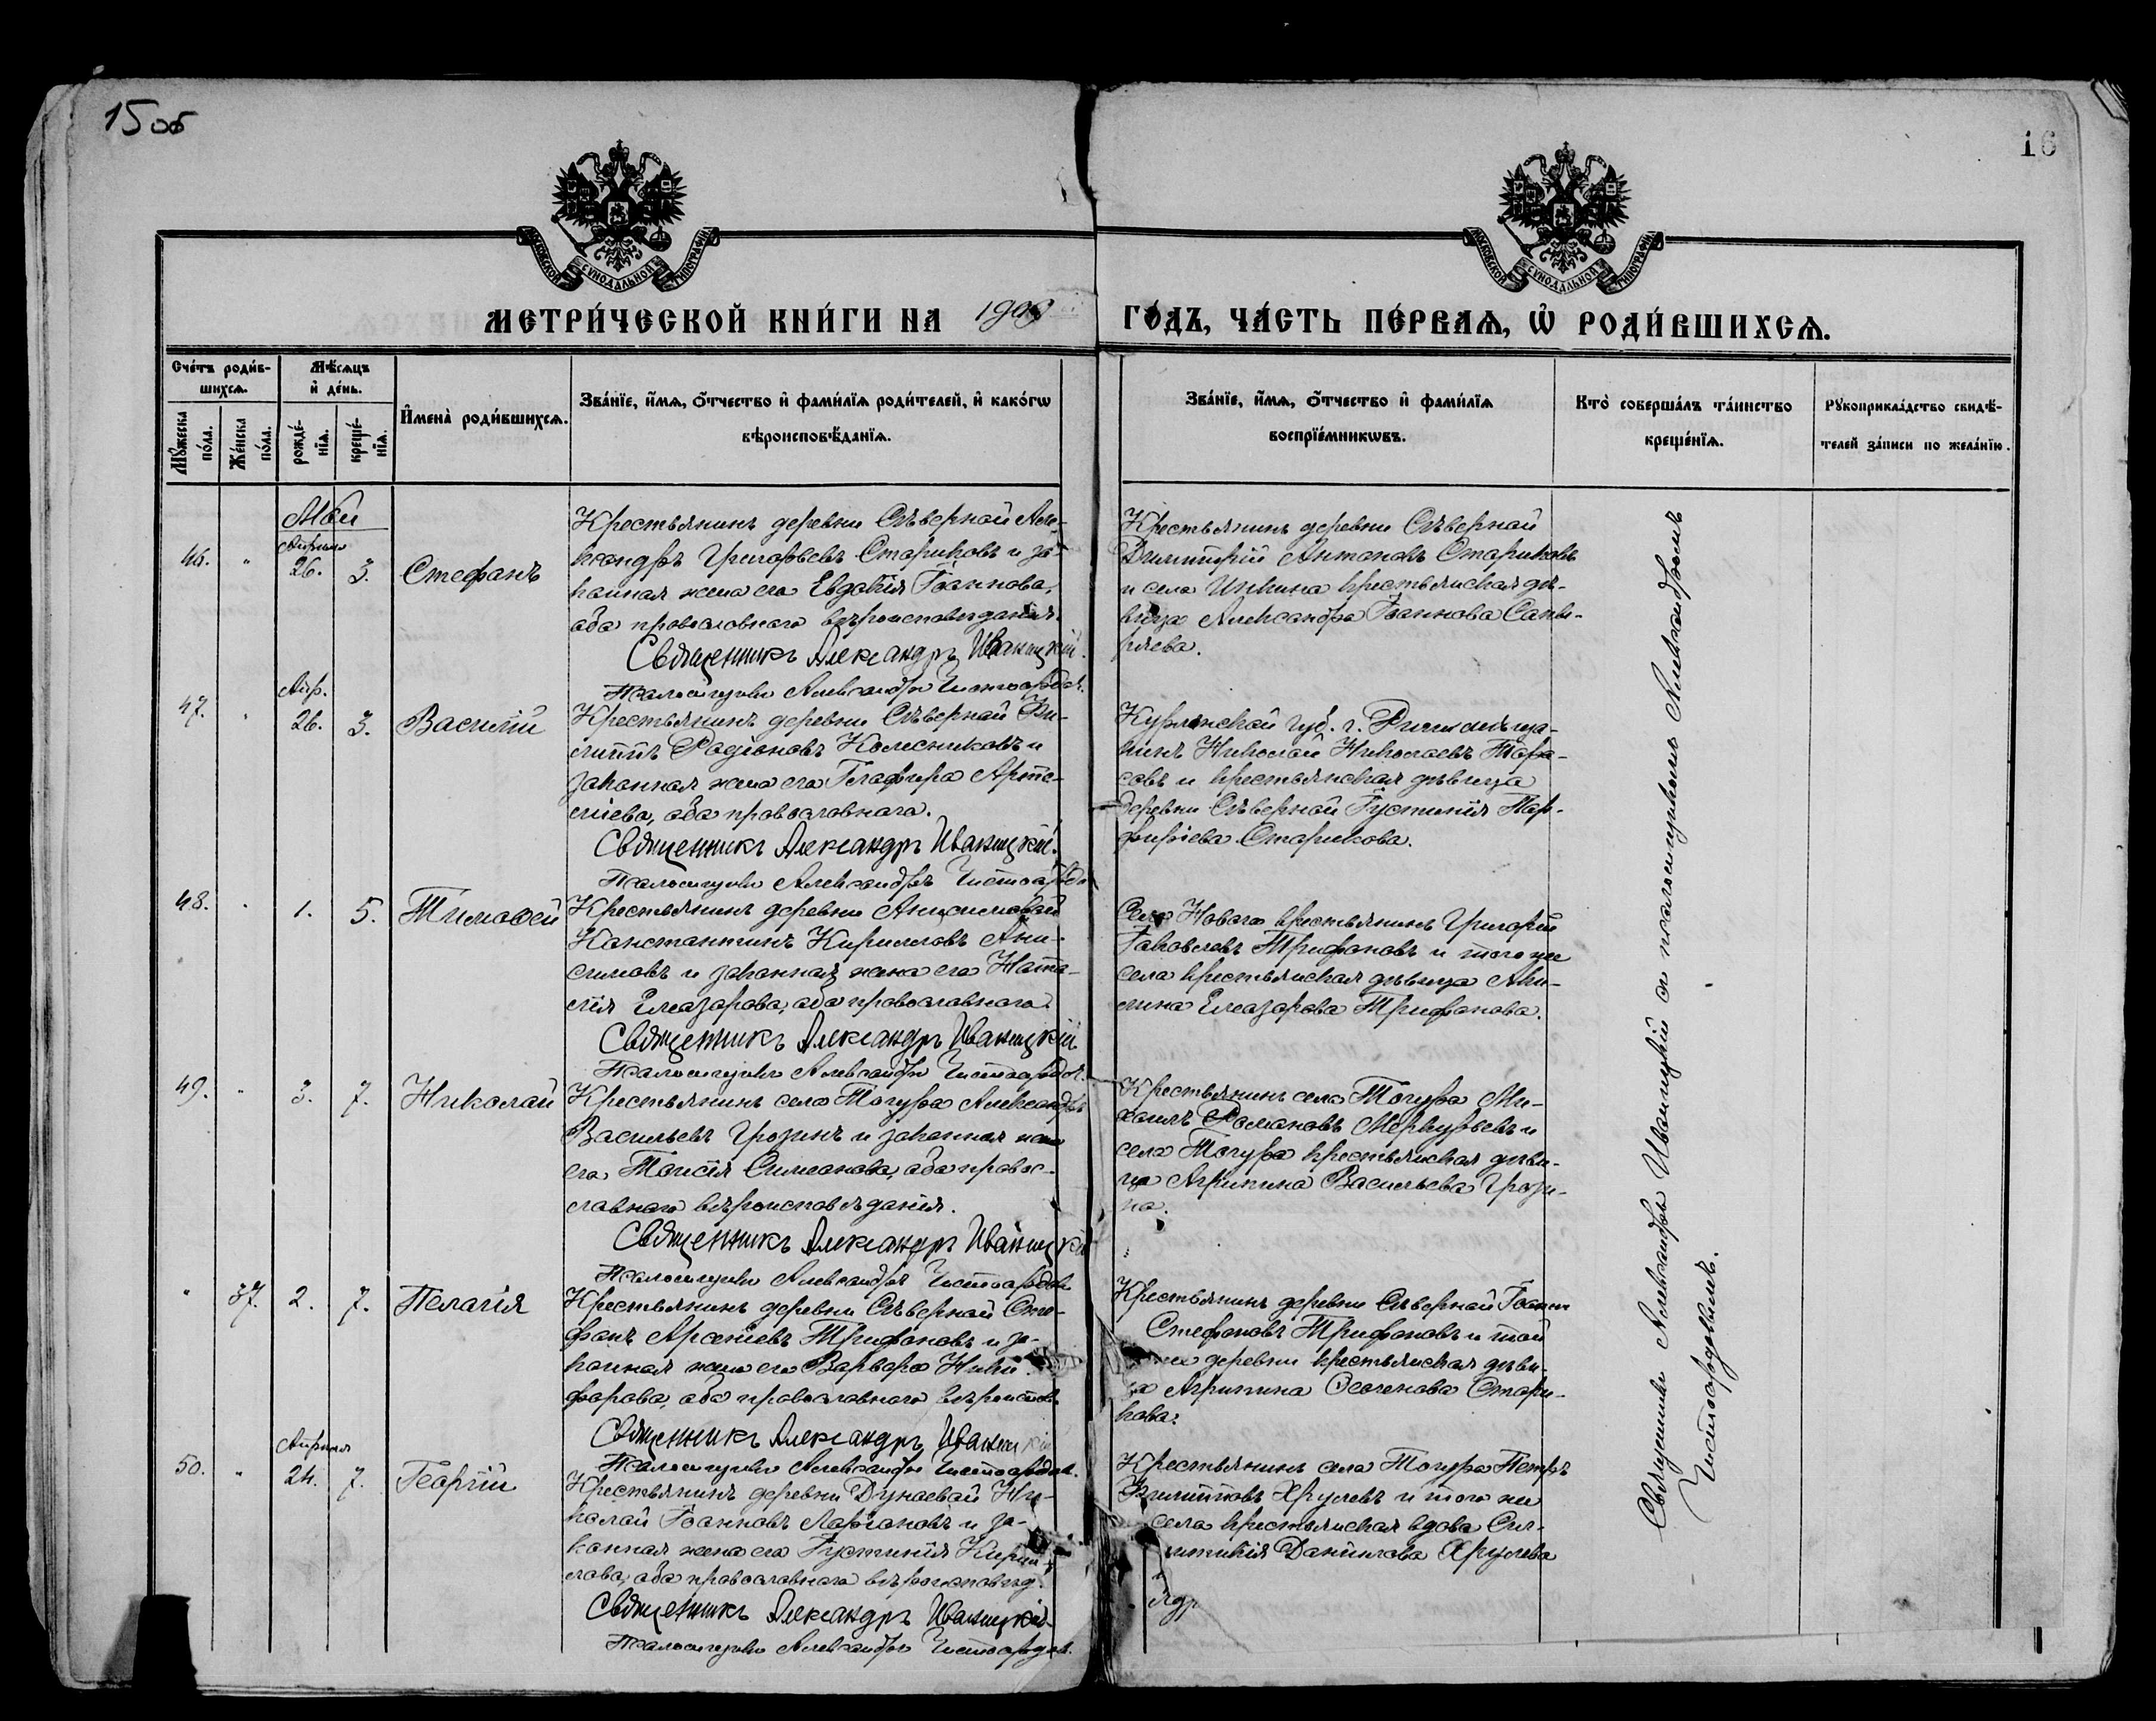 15 об
16
МОСКОВСКОЙ СѴНОДАЛЬНОЙ ТИПОГРАФІИ
МОСКОВСКОЙ СѴНОДАЛЬНОЙ ТИПОГРАФІИ
МЕТРИ́ЧЕСКОЙ КНИ́ГИ НА 1909 ГО́ДЪ, ЧА́СТЬ ПЕ́РВАѦ, Ѡ҆ РОДИ́ВШИХСѦ.
Сче́тъ роди́в-
шихсѧ.
Мѣ́сѧцъ
и҆ де́нь.
Мꙋ́жеска по́ла.
Же́нска по́ла.
рожде́-
нїѧ.
креще́-
нїѧ.
И҆мена̀ роди́вшихсѧ.
Зва́нїе, и҆́мѧ, ѻ҆́тчество и҆ фами́лїѧ роди́телей, и҆ како́гѡ
вѣроисповѣ́данїѧ.
Зва́нїе, и҆́мѧ, ѻ҆́тчество и҆ фами́лїѧ
воспрїе́мникѡвъ.
Кто̀ соверша́лъ та́инство
креще́нїѧ.
Рꙋкоприкла́дство свидѣ́-
телей за́писи по жела́нїю.
Май
46. " Апрѣля 26. 3. Стефанъ
Крестьянинъ деревни Сѣверной Але-
ксандръ Григорьевъ Стариковъ и за-
конная жена его Евдокія Іоаннова,
оба православнаго вѣроисповѣданія.
Священникъ Александръ Иваницкій.
Псаломщикъ Александръ Чистосердов.
Крестьянинъ деревни Сѣверной
Димитрій Антоновъ Стариковъ
и села Инкина крестьянская дѣ-
вица Александра Іоаннова Сапы-
ряева.
47. " Апр. 26. 3. Василій
Крестьянинъ деревни Сѣверной Фи-
липпъ Родіоновъ Колесниковъ и
законная жена его Глафира Арте-
міева, оба православнаго.
Священникъ Александръ Иваницкій.
Псаломщикъ Александръ Чистосердо
Курлянской губ. г. мѣща-
нинъ Николай Николаевъ Тара-
совъ и крестьянская дѣвица
деревни Сѣверной Іустинія Пор-
фиріева Старикова.
48. " 1. 5. Тимоѳей
Крестьянинъ деревни Анисимовой
Константинъ Кирилловъ Ани-
симовъ и законная жена его Ната-
лія Елеазарова, оба православнаго
Священникъ Александръ Иваницкій
Псаломщикъ Александръ Чистосердов.
Села Новаго крестьянинъ Григорій
Іаковлевъ Трифоновъ и того же
села крестьянская дѣвица Аки-
лина Елеазарова Трифонова.
49. " 3. 7. Николай
Крестьянинъ села Тогура Александръ
Васильевъ Грозинъ и законная жена
его Таисія Симеонова, оба правос-
лавнаго вѣроисповѣданія.
Священникъ Александръ Иваницкій
Псаломщикъ Александръ Чистосердов
Крестьянинъ села Тогура Ми-
хаилъ Романовъ Меркурьевъ и
села Тогура крестьянская дѣви-
ца Агрипина Васильева Грози-
на.
" 37. 2. 7. Пелагія
Крестьянинъ деревни Сѣверной Сте-
фанъ Арсеніевъ Трифоновъ и за-
конная жена его Варвара Ники-
форова, оба православнаго вѣроиспов.
Священникъ Александръ Иваницкій
Псаломщикъ Александръ Чистосердов.
Крестьянинъ деревни Сѣверной Іоаннъ
Стефановъ Трифоновъ и той
же деревни крестьянская дѣви-
ца Агрипина Стари-
кова.
50. " Апрѣля 24. 7. Георгій
Крестьянинъ деревни Дунаевой Ни-
колай Іоанновъ Ларіоновъ и за-
конная жена его Іустинія Кирил-
лова, оба православнаго вѣроисповѣд.
Священникъ Александръ Иваницкій.
Псаломщикъ Александръ Чистосердов.
Крестьянинъ села Тогура Петръ
Филипповъ Хрулевъ и того же
села крестьянская вдова
Данилова Хрулева
Священникъ Александръ Иваницкій съ псаломщикомъ Александромъ
Чистосердовымъ.